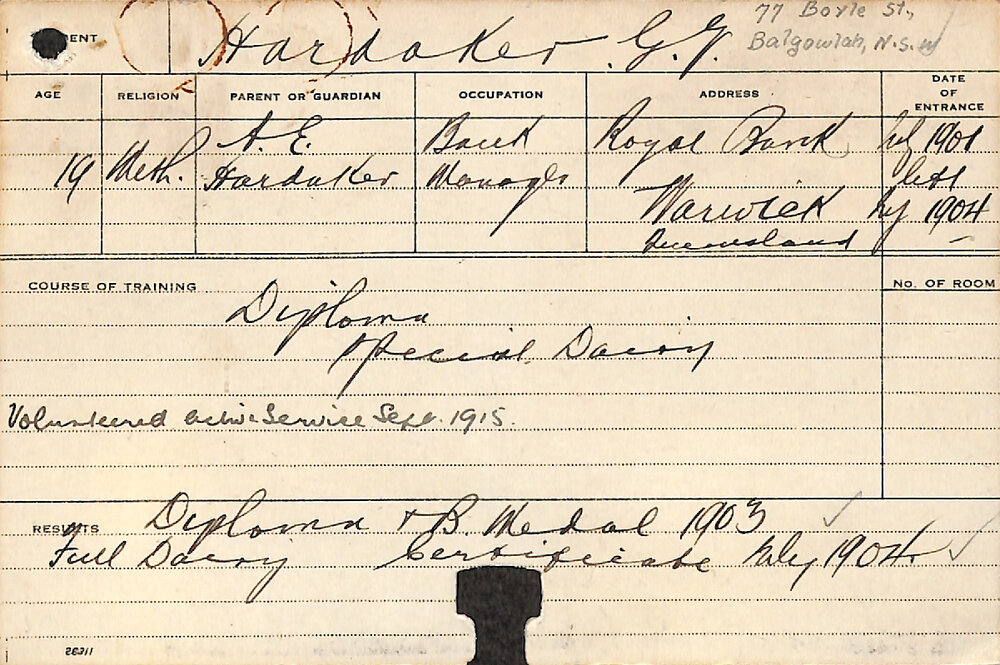 ENT Hardaker G. G. 77 Boyle St.,
Balgowlah, N.S.W
AGE RELIGION PARENT OR GUARDIAN OCCUPATION ADDRESS DATE OF ENTRANCE
A. E. Bank Royal Bank July 1901
19 Meth. Hardaker Manager left
Warwick July 1904
Queensland
COURSE OF TRAINING No. OF ROOM
Diploma
Special Dairy
Volunteered active Service Sept. 1915.
RESULTS Diploma + B. Medal 1903
Full Dairy Certificate July 1904